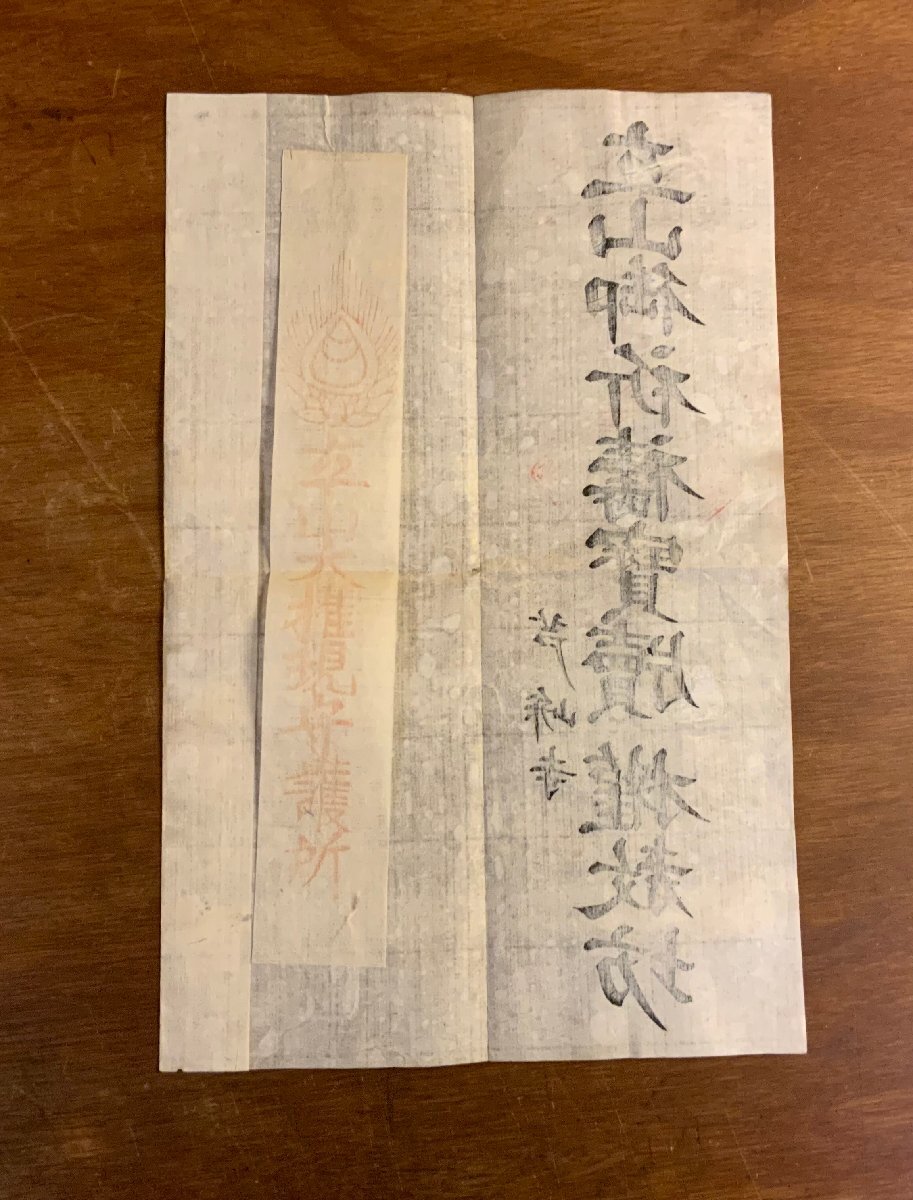 立山御祈禱寶牘 權教坊
芦峅寺
立山大權現守護所